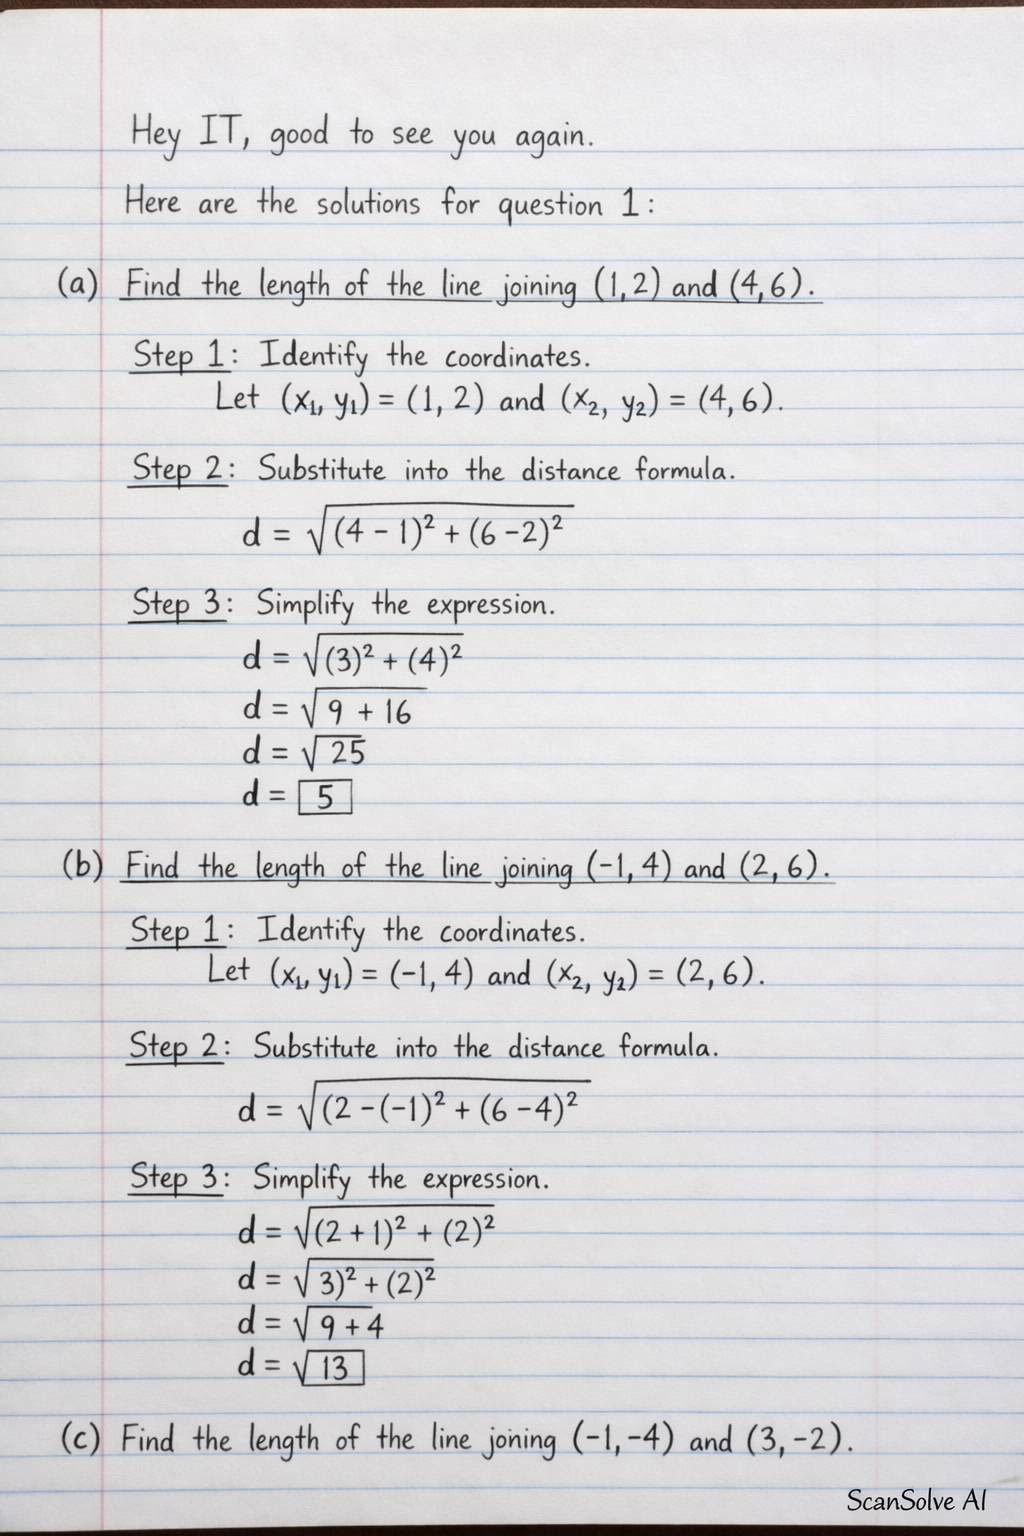 Hey IT, good to see you again.
Here are the solutions for question 1:
(a) Find the length of the line joining (1,2) and (4,6).
Step 1: Identify the coordinates.
Let (x₁, y₁) = (1, 2) and (x₂, y₂) = (4, 6).
Step 2: Substitute into the distance formula.
d = √(4 - 1)² + (6 - 2)²
Step 3: Simplify the expression.
d = √(3)² + (4)²
d = √9 + 16
d = √25
d = 5
(b) Find the length of the line joining (-1, 4) and (2, 6).
Step 1: Identify the coordinates.
Let (x₁, y₁) = (-1, 4) and (x₂, y₂) = (2, 6).
Step 2: Substitute into the distance formula.
d = √(2 - (-1)² + (6 - 4)²
Step 3: Simplify the expression.
d = √(2 + 1)² + (2)²
d = √3)² + (2)²
d = √9 + 4
d = √13
(c) Find the length of the line joning (-1, -4) and (3, -2).
ScanSolve AI